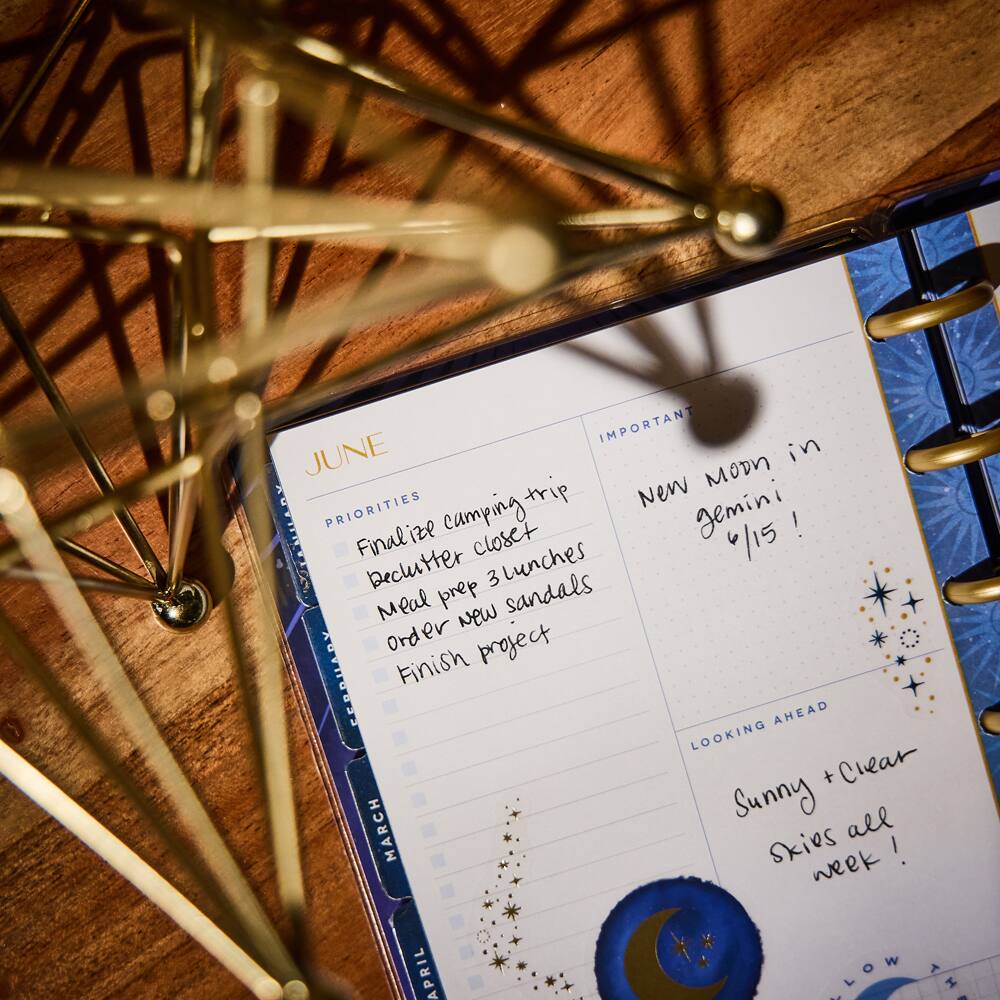 JUNE
PRIORITIES
Finalize camping trip
declutter closet
Meal prep 3 lunches
order new sandals
Finish project
IMPORTANT
New Moon in
gemini
6/15 !
LOOKING AHEAD
Sunny + Clear
skies all
week !
JANUARY
FEBRUARY
MARCH
APRIL